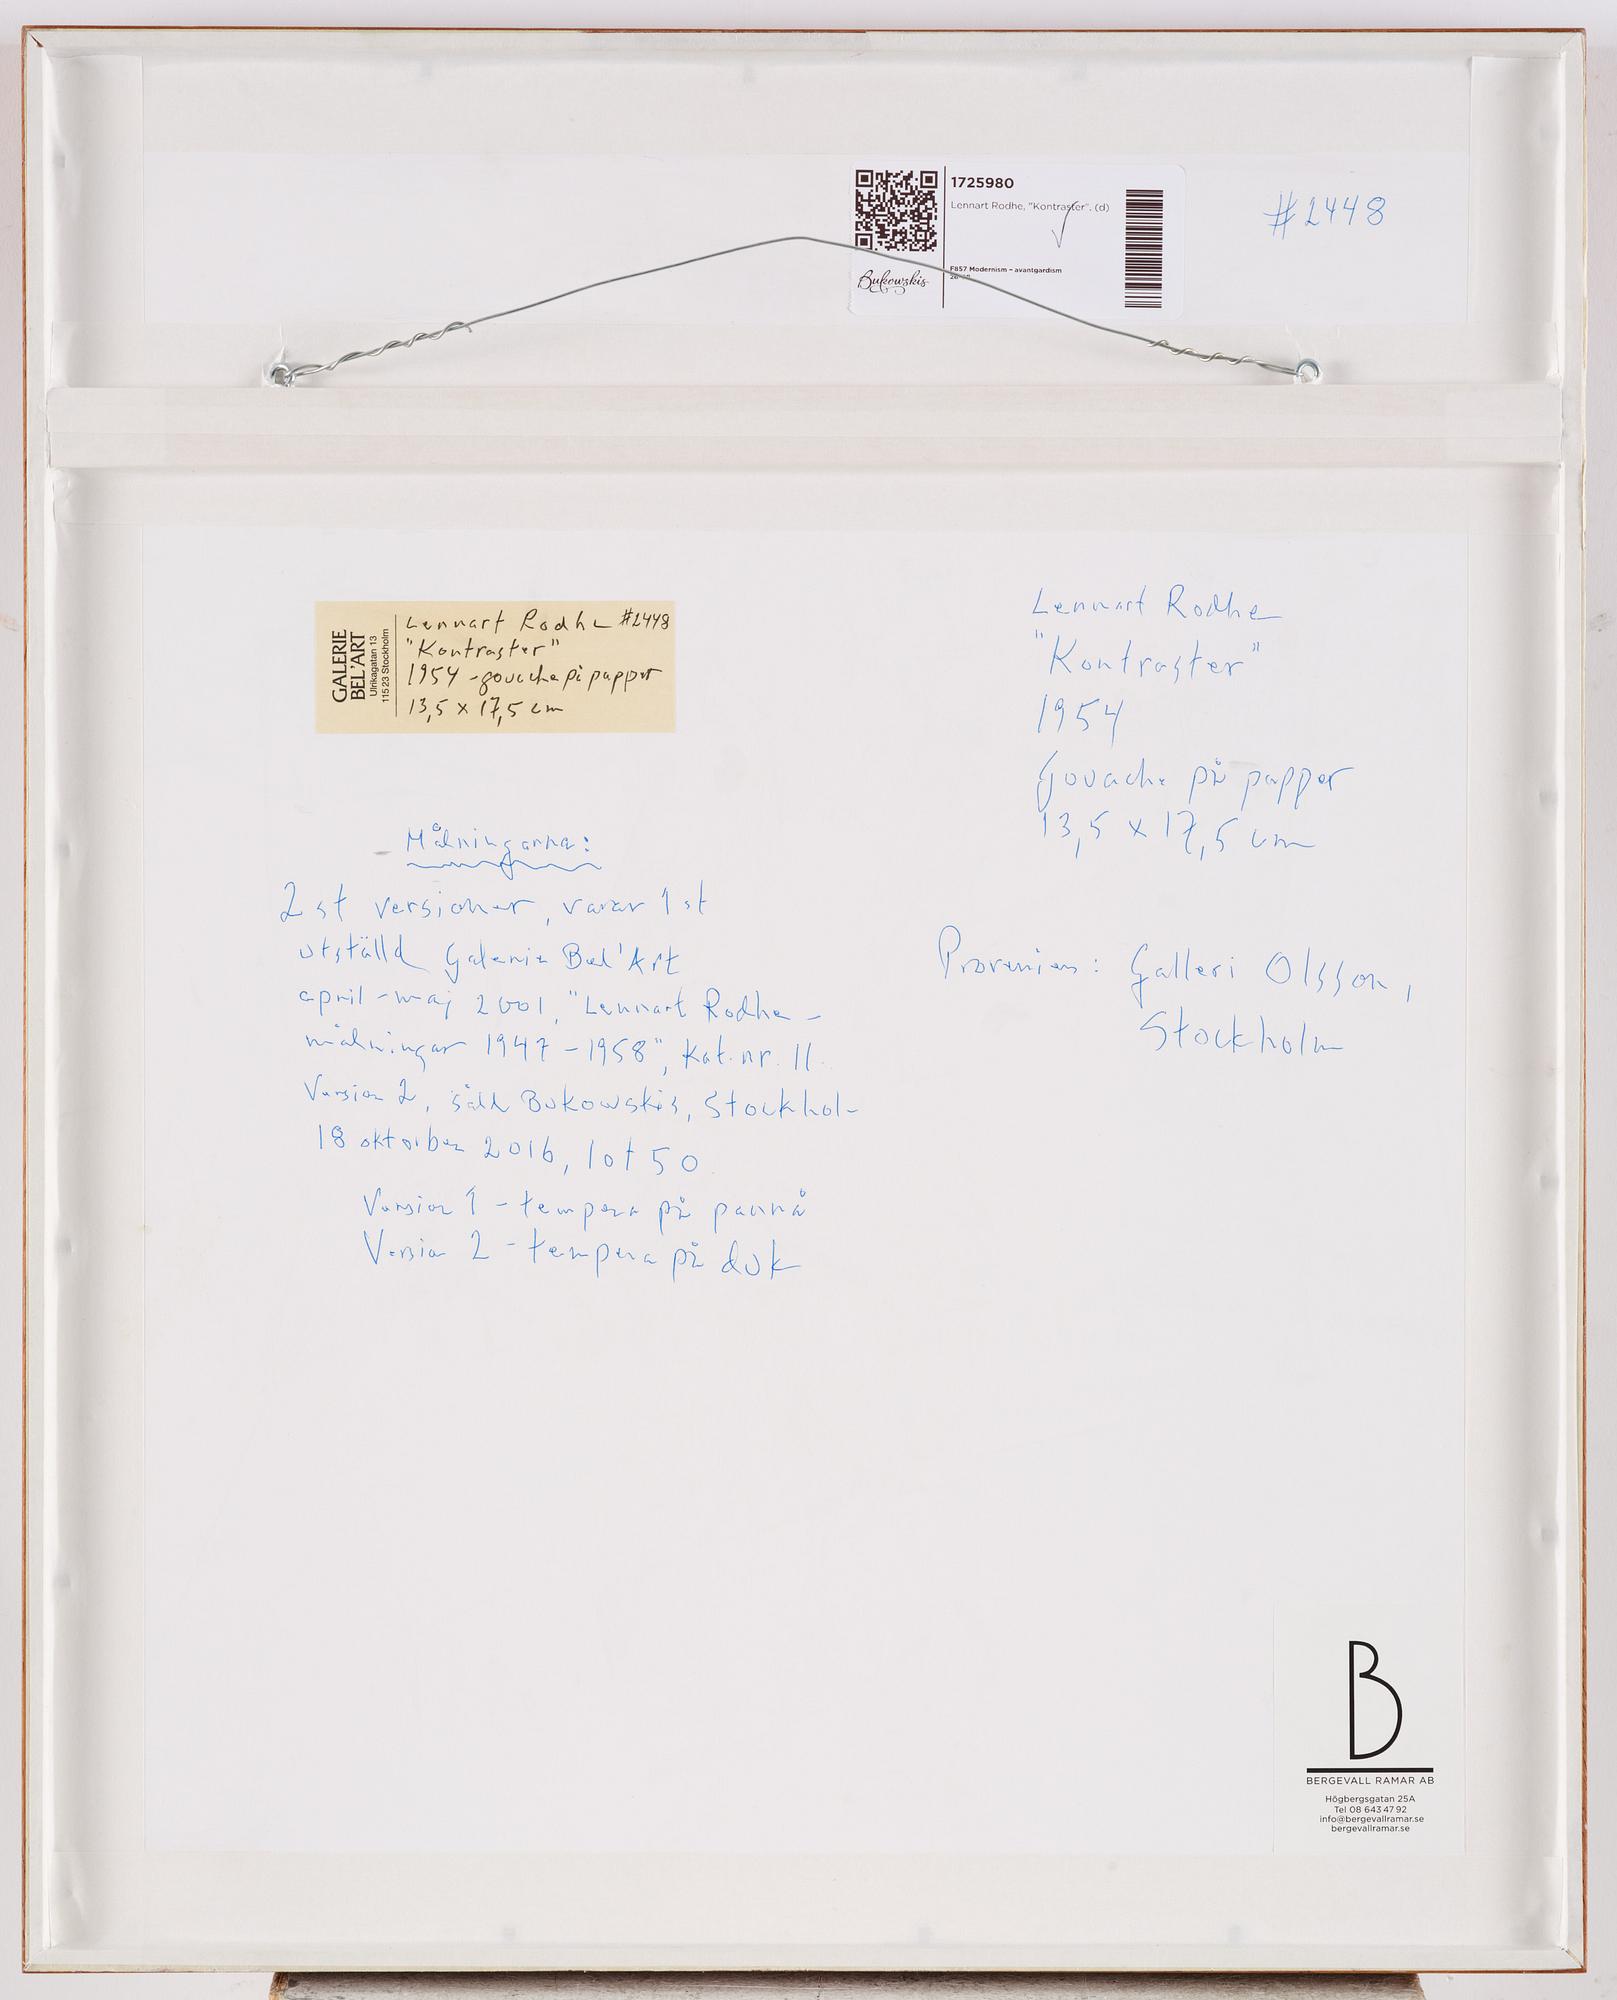 1725980
Lennart Rodhe, "Kontraster". (d)
F857 Modernism – avantgardism
Bukowskis
#2448
GALERIE
BEL'ART
Ulrikagatan 13
115 23 Stockholm
Lennart Rodhe #2448
"Kontraster"
1954 - gouache på papper
13,5 x 17,5 cm
Lennart Rodhe
"Kontraster"
1954
Gouache på papper
13,5 x 17,5 cm
Målningarna:
2 st versioner, varav 1 st
utställd Galerie Bel'Art
april-maj 2001, "Lennart Rodhe –
målningar 1947-1958", Kat. nr. 11.
Version 2, såld Bukowskis, Stockhol-
18 oktober 2016, lot 50
Version 1 - tempera på pannå
Version 2 - tempera på duk
Proveniens: Galleri Olsson,
Stockholm
B
BERGEVALL RAMAR AB
Högbergsgatan 25A
Tel 08 643 47 92
info@bergevallramar.se
bergevallramar.se